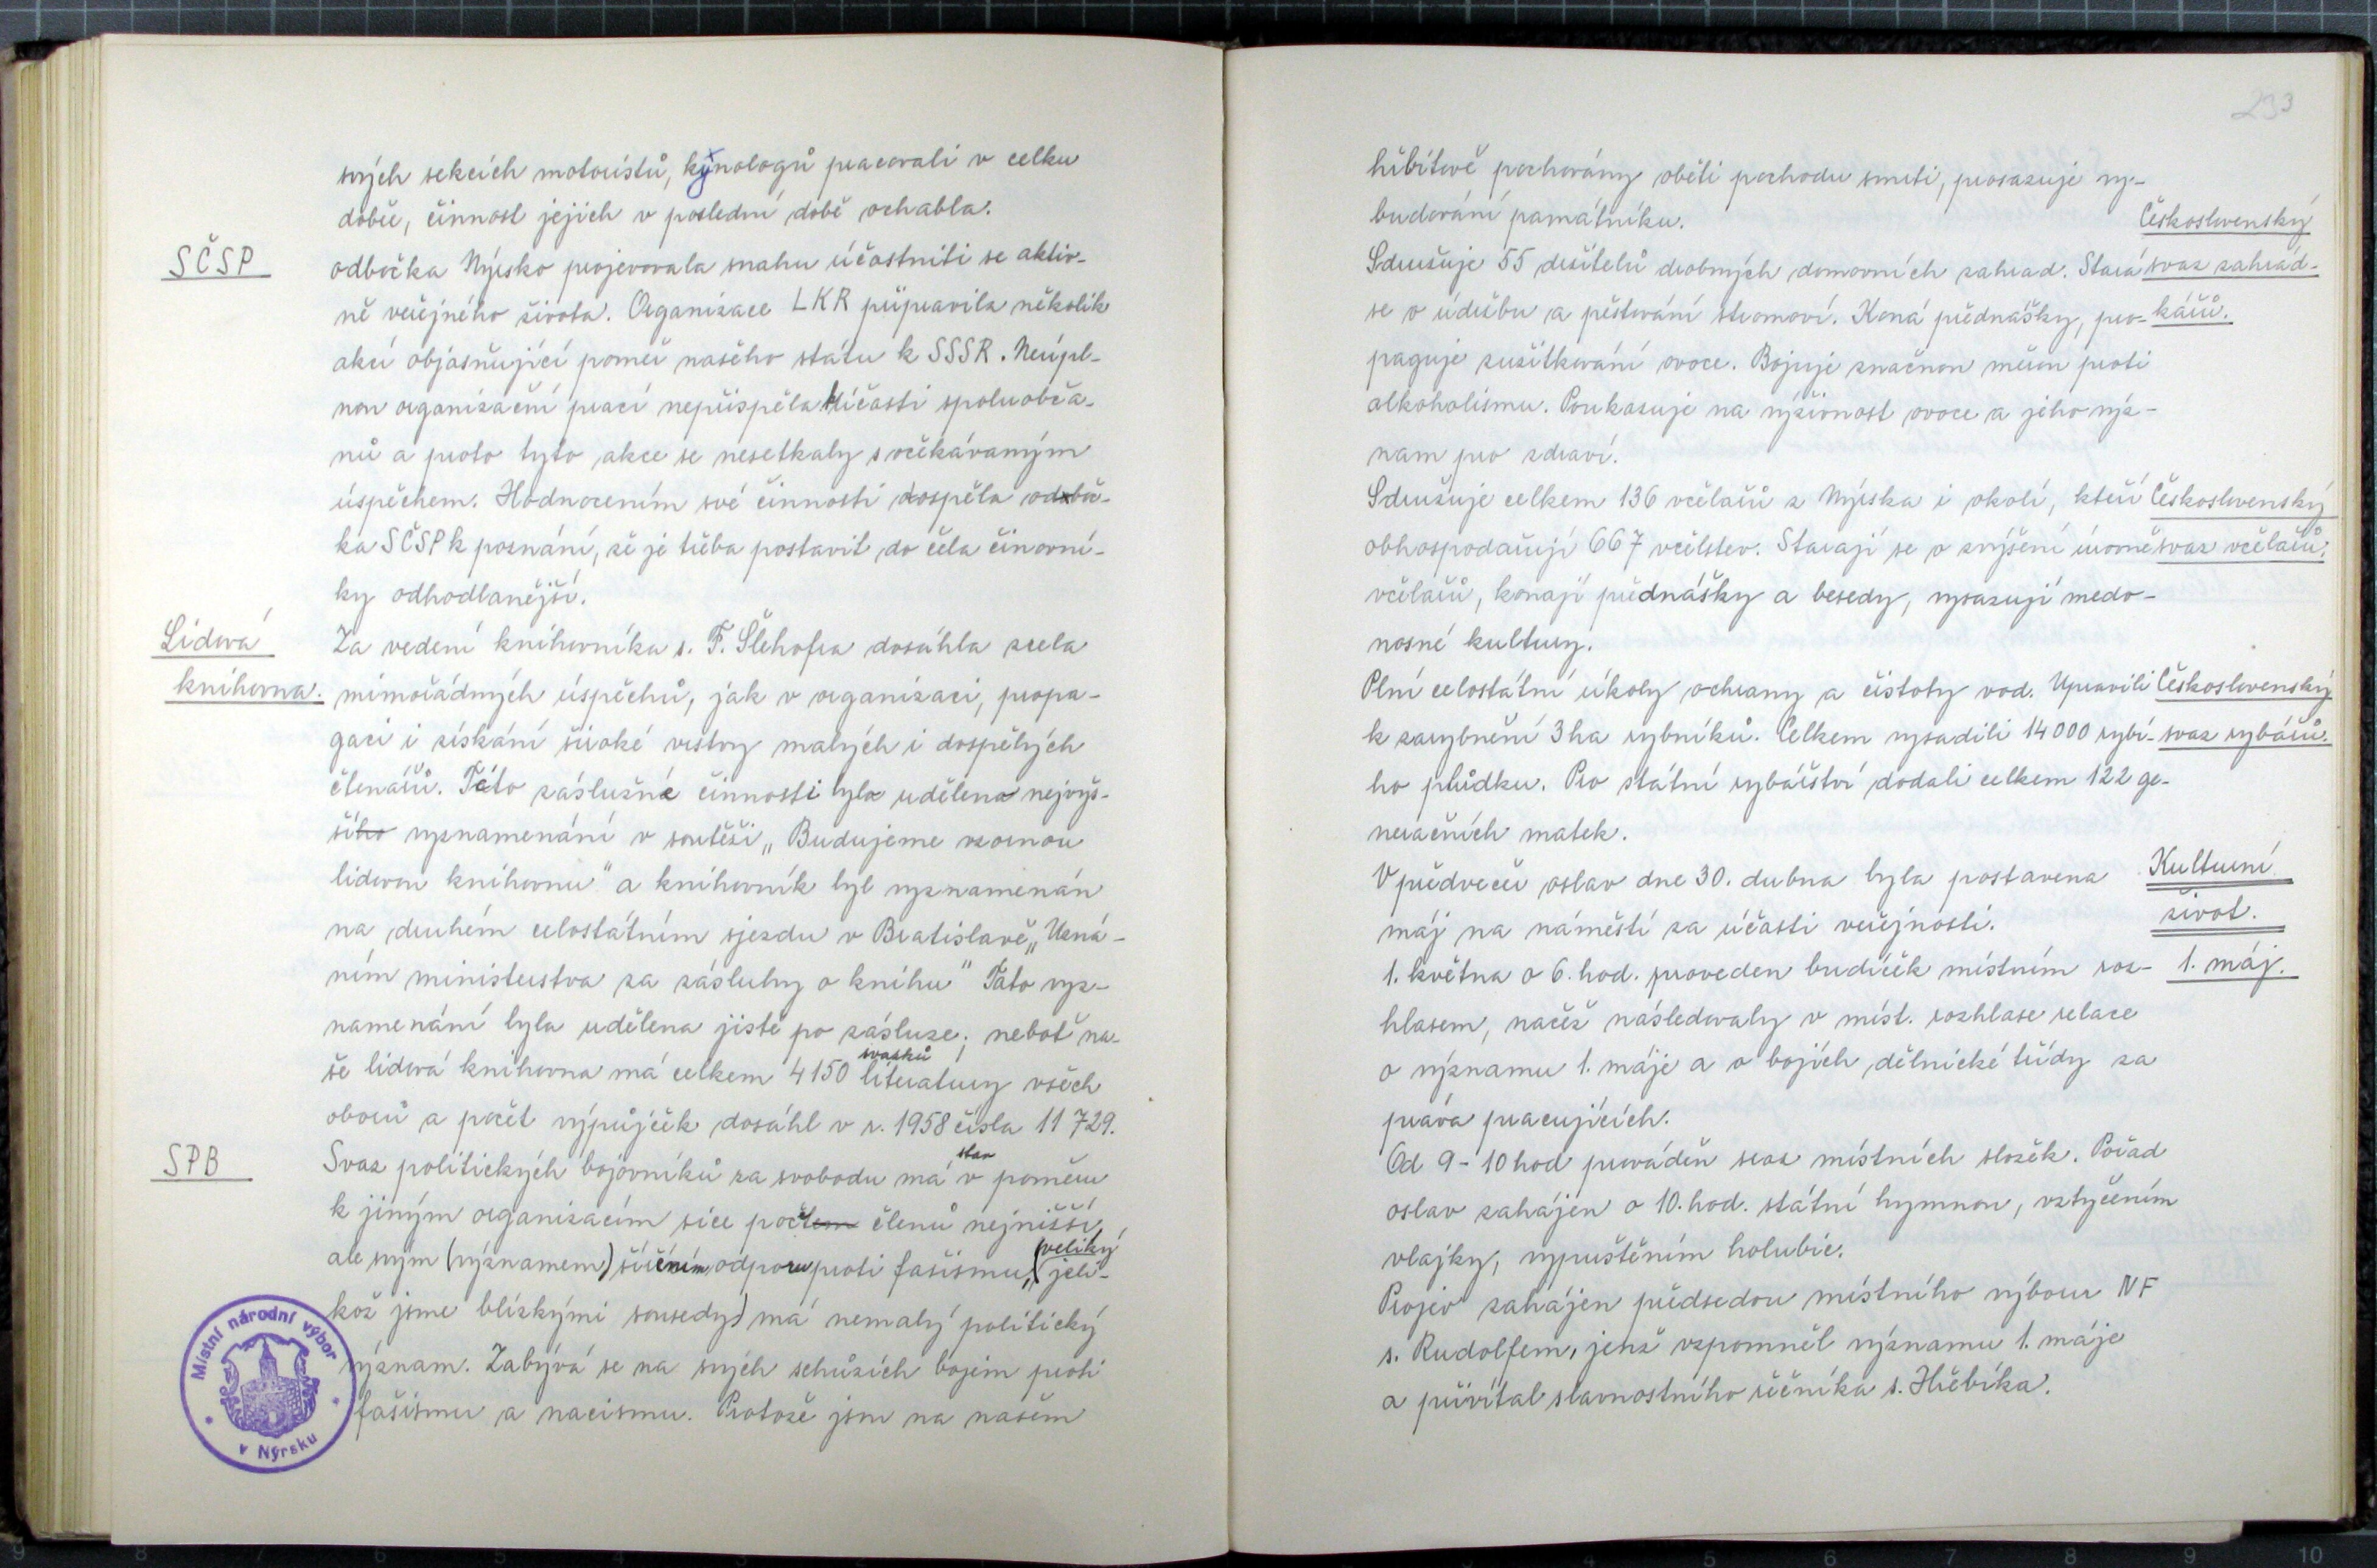 svých sekcích motoristů, kynologů pracovali v celku
dobře, činnost jejich v poslední době ochabla.
SČSP
odbočka Nýrsko projevovala snahu účastniti se aktiv-
ně veřejného života. Organizace LKR připravila několik
akcí objasňující poměr našeho státu k SSSR. Neúpl-
nou organizační prací nepřispěla k účasti spoluobča-
nů a proto tyto akce se nesetkaly s očekávaným
úspěchem. Hodnocením své činnosti dospěla odboč-
ka SČSP k poznání, že je třeba postavit do čela činovní-
ky odhodlanější.
Lidová
knihovna.
Za vedení knihovníka s. F. Šlehofra dosáhla zcela
mimořádných úspěchů, jak v organizaci, propa-
gaci i získání široké vrstvy malých i dospělých
čtenářů. Této záslužné činnosti byla udělena nejvyš-
šího vyznamenání v soutěži „Budujeme vzornou
lidovou knihovnu" a knihovník byl vyznamenán
na druhém celostátním sjezdu v Bratislavě „Uzná-
ním ministerstva za zásluhy o knihu" Tato vyz-
namenání byla udělena jistě po zásluze; neboť na-
svazků
še lidová knihovna má celkem 4150 literatury všech
oborů a počet výpůjček dosáhl v r. 1958 čísla 11 729.
SPB
stav
Svaz politických bojovníků za svobodu má v poměru
k jiným organizacím sice počtem členů nejnižší,
veliký
ale svým (významem) šířením odporu proti fašismu, (jeli-
kož jsme blízkými sousedy) má nemalý politický
význam. Zabývá se na svých schůzích bojem proti
fašismu a nacismu. Protože jsou na našem
Místní národní výbor
v Nýrsku
233
hřbitově pochovány oběti pochodu smrti, prosazuje vy-
budování památníku.
Československý
svaz zahrád-
kářů.
Sdružuje 55 držitelů drobných domovních zahrad. Stará
se o údržbu a pěstování stromoví. Koná přednášky, pro-
paguje zužitkování ovoce. Bojuje značnou měrou proti
alkoholismu. Poukazuje na výživnost ovoce a jeho výz-
nam pro zdraví.
Československý
svaz včelařů.
Sdružuje celkem 136 včelařů z Nýrska i okolí, kteří
obhospodařují 667 včelstev. Starají se o zvýšení úrovně
včelařů, konají přednášky a besedy, vysazují medo-
nosné kultury.
Československý
svaz rybářů.
Plní celostátní úkoly ochrany a čistoty vod. Upravili
k zarybnění 3 ha rybníků. Celkem vysadili 14 000 rybí-
ho plůdku. Pro státní rybářství dodali celkem 122 ge-
neračních matek.
Kulturní
život.
V předvečer oslav dne 30. dubna byla postavena
máj na náměstí za účasti veřejnosti.
1. máj.
1. května o 6. hod. proveden budíček místním roz-
hlasem, načež následovaly v míst. rozhlase relace
o významu 1. máje a o bojích dělnické třídy za
práva pracujících.
Od 9 - 10 hod prováděn sraz místních složek. Pořad
oslav zahájen o 10. hod. státní hymnou, vztyčením
vlajky, vypuštěním holubic.
Projev zahájen předsedou místního výboru NF
s. Rudolfem, jenž vzpomněl významu 1. máje
a přivítal slavnostního řečníka s. Hřebíka.